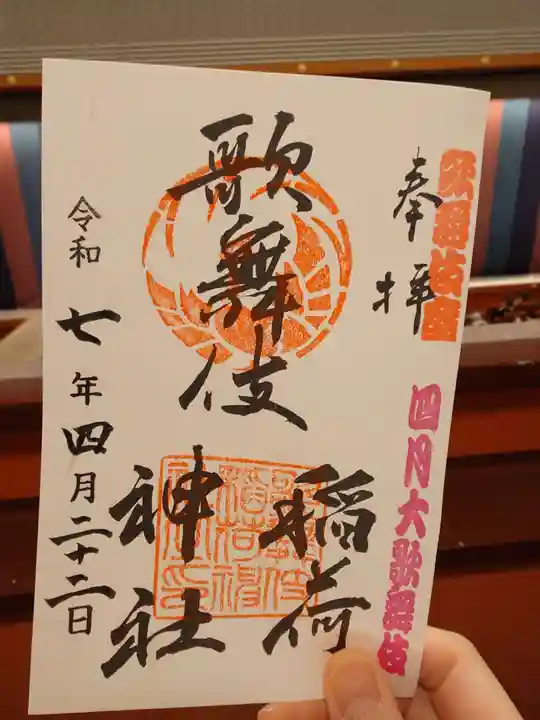 歌舞伎座
奉拝
四月大歌舞伎
歌舞伎
稲荷
神社
令和七年四月二十二日